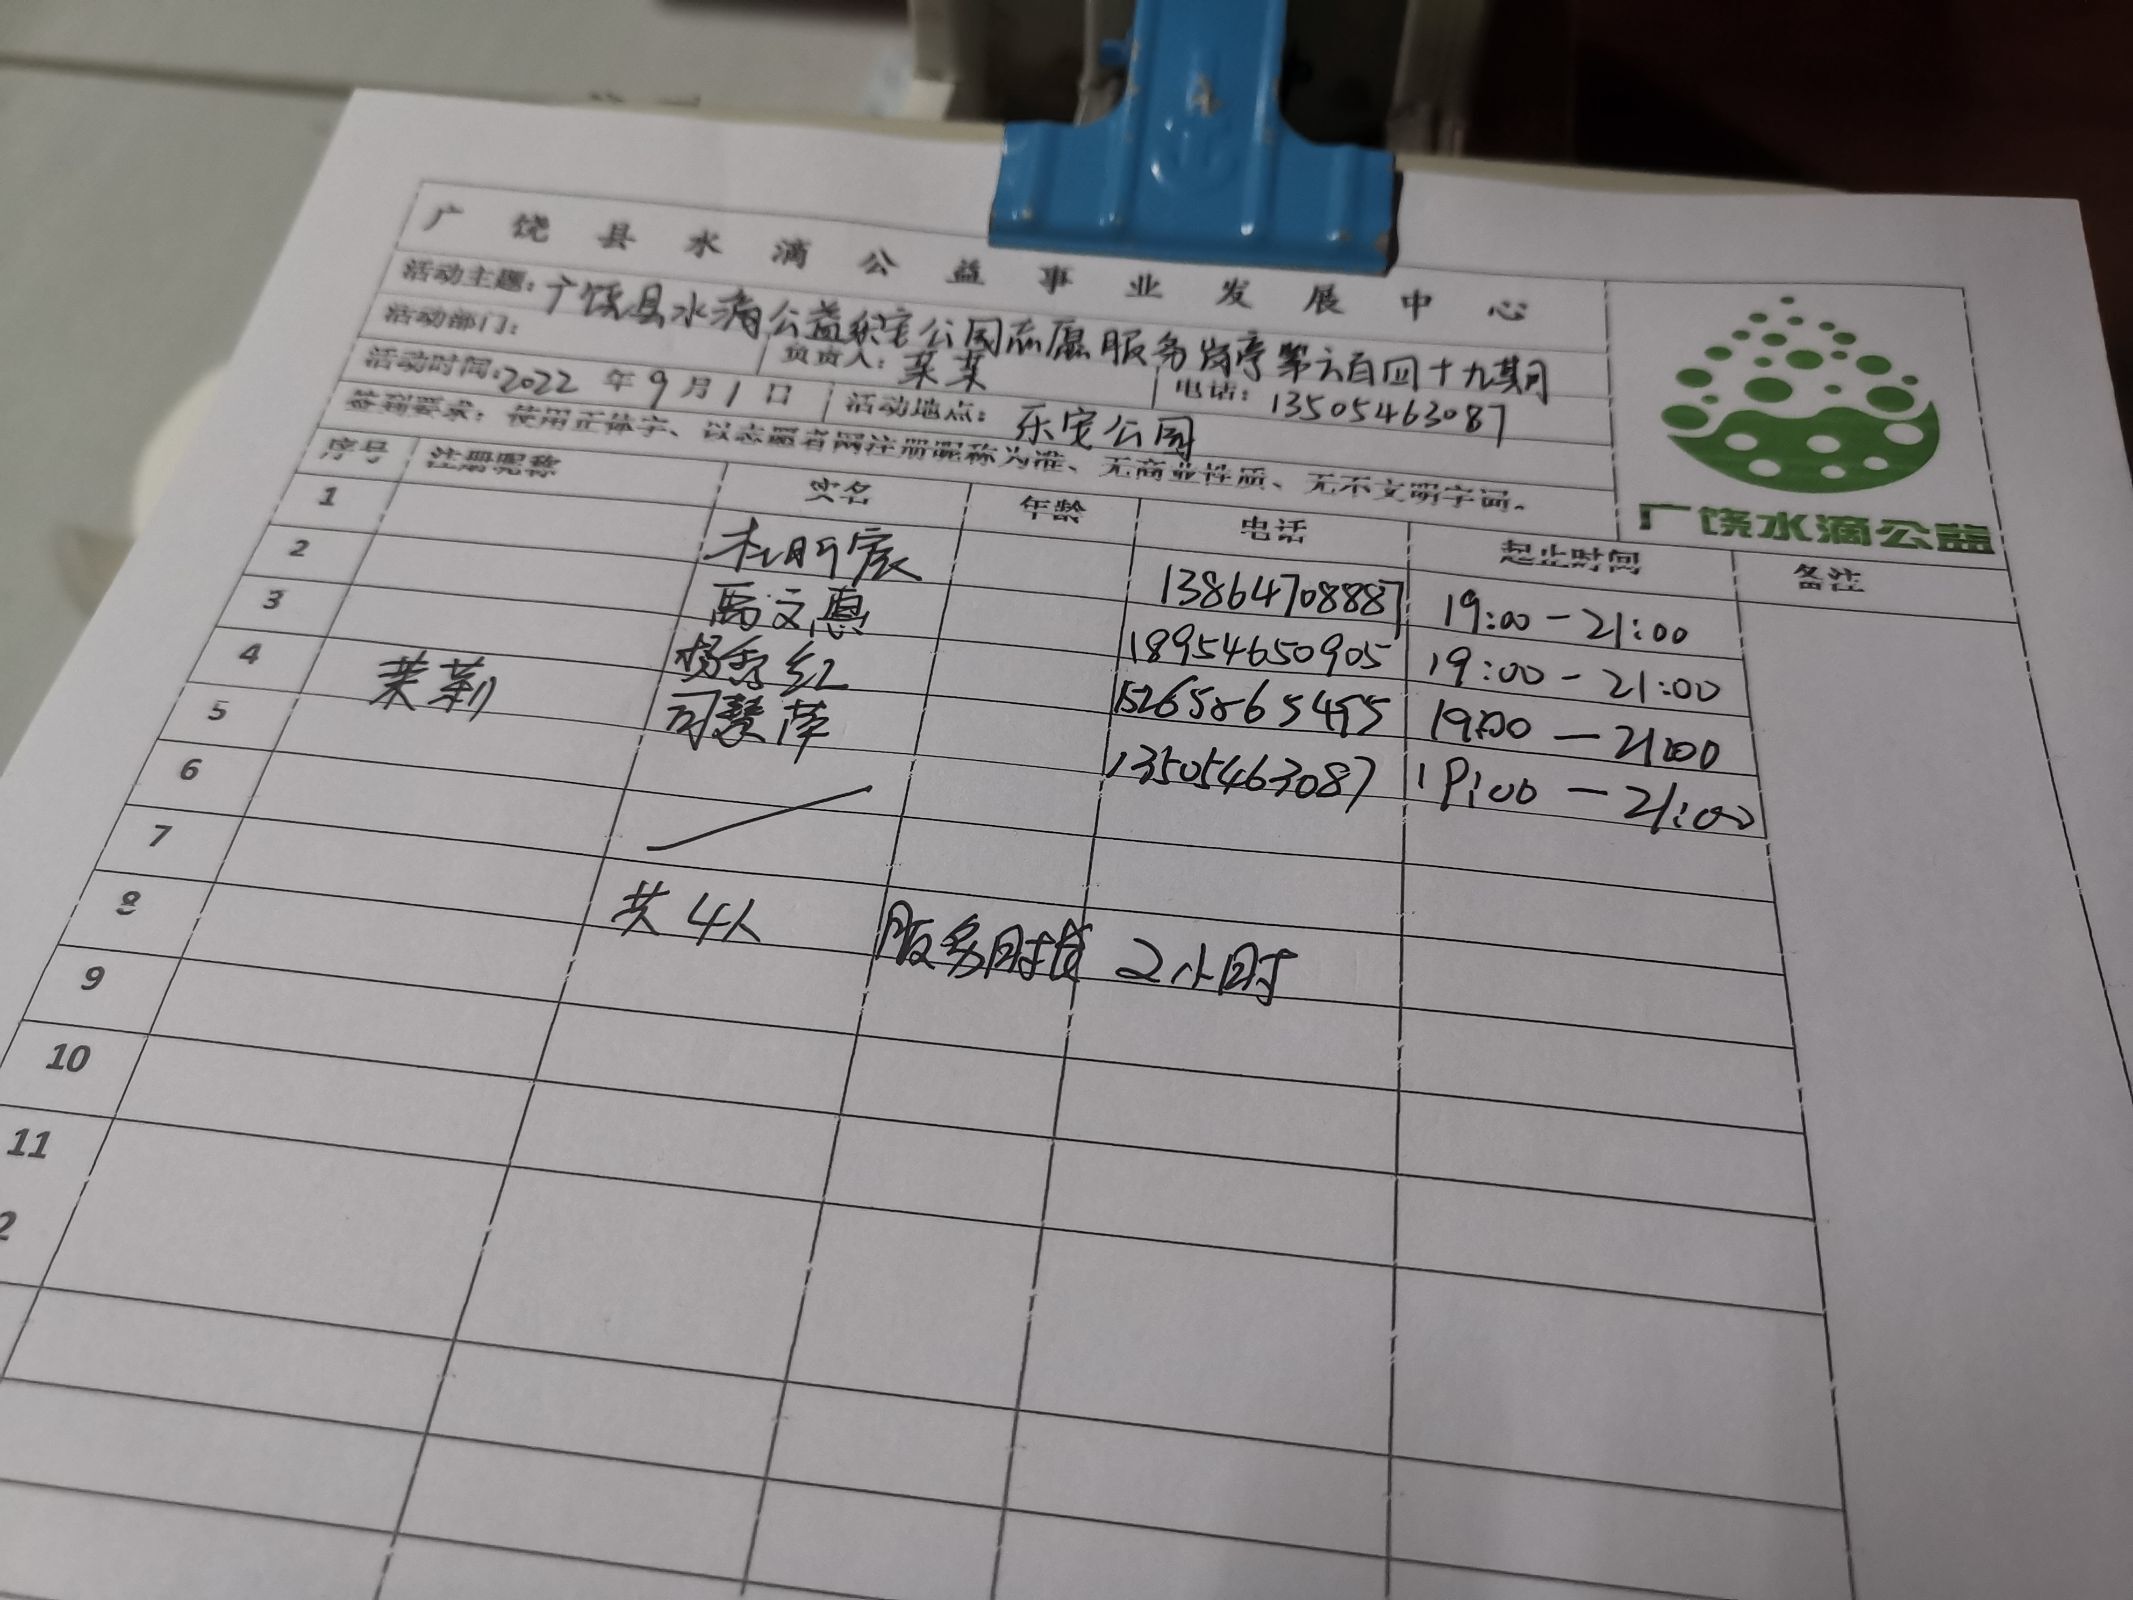 广饶县水滴公益事业发展中心
活动主题：广饶县水滴公益乐安公园志愿服务岗亭第六百四十九期
活动部门： 负责人：茉莉 电话：13505463087
活动时间：2022年9月1日 活动地点：乐安公园
签到要求：使用正体字、以志愿者网注册昵称为准、无商业性质、无不文明字词。
广饶水滴公益
序号 注册昵称 实名 年龄 电话 起止时间 备注
1 杜昕宸 13864708887 19:00-21:00
2 禹文惠 18954650905 19:00-21:00
3 杨秀红 15265865495 19:00-21:00
4 茉莉 司慧萍 13505463087 19:00-21:00
5
6
7
8 共4人 服务时长 2小时
9
10
11
2